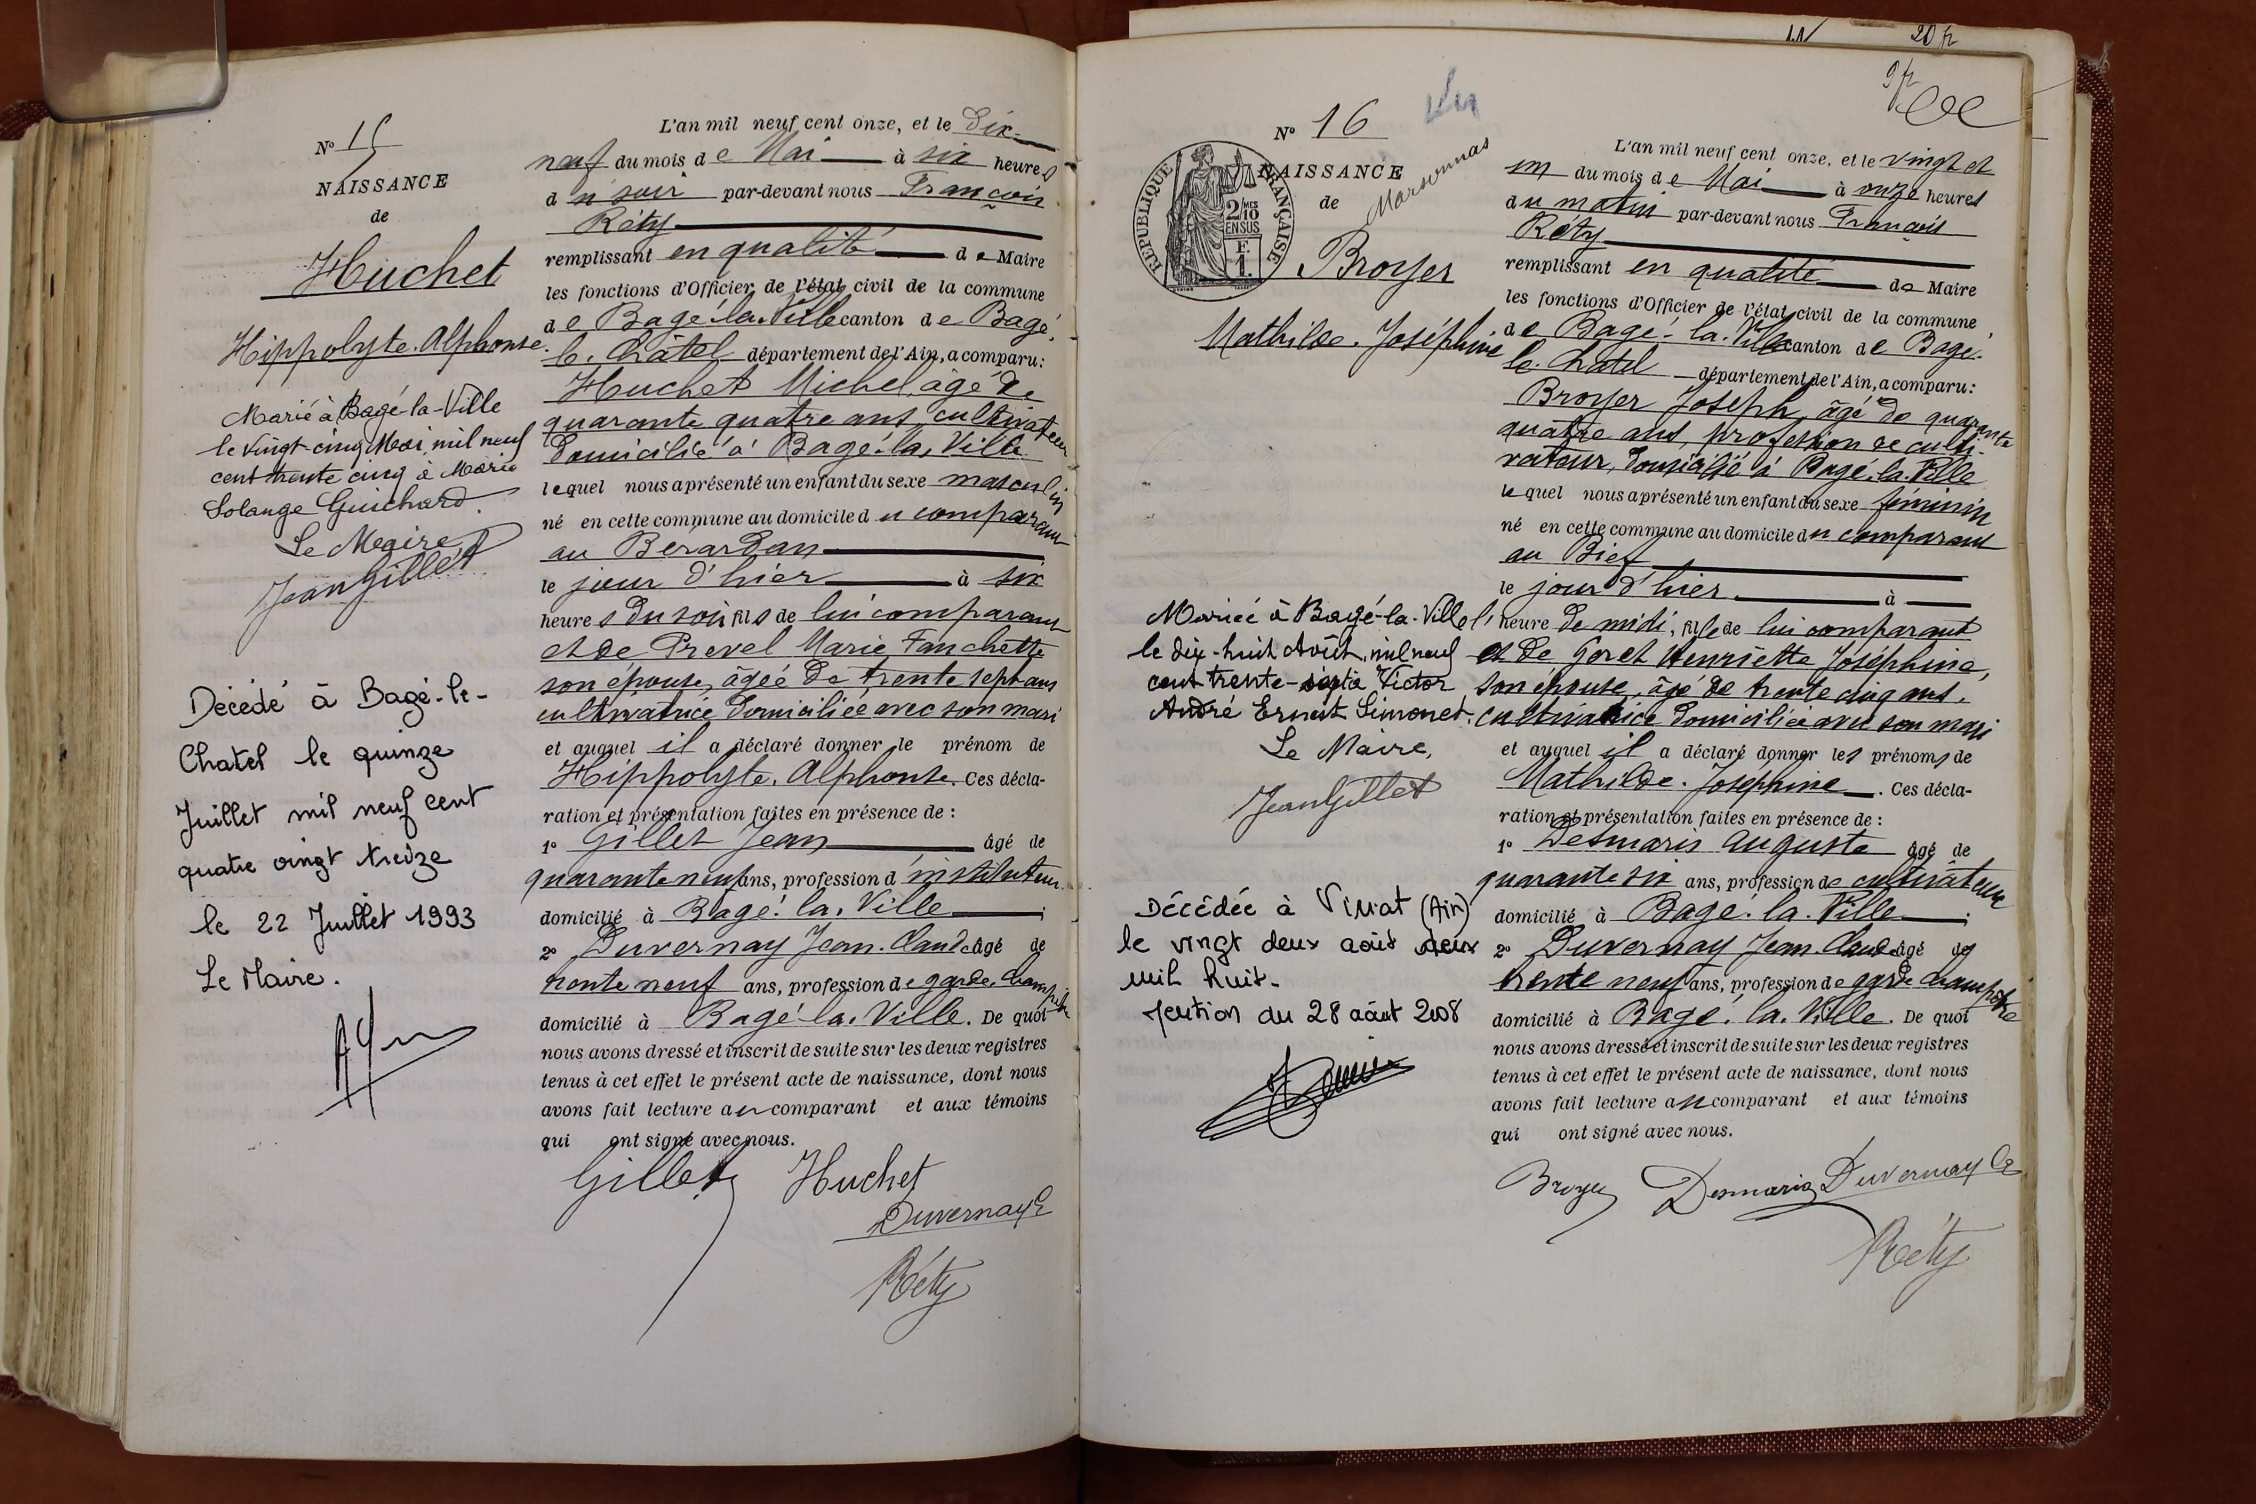 N° 15
NAISSANCE
de
Huchet
Hippolyte. Alphonse.
Marié à Bagé-la-Ville
le vingt-cinq Mai, mil neuf
cent trente cinq à Marie
Solange Guichard.
Le Maire
Jean Gillet
Décédé à Bagé-le-
Chatel le quinze
Juillet mil neuf cent
quatre vingt treize
le 22 Juillet 1993
Le Maire.
L'an mil neuf cent onze, et le Dix-
neuf du mois de Mai à six heures
du soir par-devant nous François
Réty
remplissant en qualité de Maire
les fonctions d'Officier de l'état civil de la commune
de Bagé-la-Ville canton de Bagé-
le-Châtel département de l'Ain, a comparu:
Huchet Michel, âgé de
quarante quatre ans, cultivateur
domicilié à Bagé-la-Ville
lequel nous a présenté un enfant du sexe masculin
né en cette commune au domicile du comparant
au Bérardan
le jour d'hier à six
heures du soir fils de lui comparant
et de Prevel Marie Fanchette
son épouse, âgée de trente sept ans
cultivatrice domiciliée avec son mari
et auquel il a déclaré donner le prénom de
Hippolyte. Alphonse. Ces décla-
ration et présentation faites en présence de :
1° Gillet Jean âgé de
quarante neuf ans, profession d'instituteur
domicilié à Bagé-la-Ville ;
2° Duvernay Jean-Claude âgé de
trente neuf ans, profession de garde champêtre
domicilié à Bagé-la-Ville. De quoi
nous avons dressé et inscrit de suite sur les deux registres
tenus à cet effet le présent acte de naissance, dont nous
avons fait lecture au comparant et aux témoins
qui ont signé avec nous.
Gillet Huchet
Duvernay
Réty
20 fr
9 fr
N° 16
NAISSANCE
de
Marsonnas
REPUBLIQUE FRANÇAISE
2/10 MES
EN SUS
F.
1.
Broyer
Mathilde. Joséphine
Mariée à Bagé-la-Ville
le dix-huit Août, mil neuf
cent trente-sept à Victor
André Ernest Simonet.
Le Maire,
Jean Gillet
Décédée à Viriat (Ain)
le vingt deux août deux
mil huit.
Mention du 28 août 2008
L'an mil neuf cent onze, et le vingt et
un du mois de Mai à onze heures
du matin par-devant nous François
Réty
remplissant en qualité de Maire
les fonctions d'Officier de l'état civil de la commune
de Bagé-la-Ville canton de Bagé-
le-Chatel département de l'Ain, a comparu:
Broyer Joseph, âgé de quarante
quatre ans, profession de culti-
vateur, domicilié à Bagé-la-Ville
lequel nous a présenté un enfant du sexe féminin
né en cette commune au domicile du comparant
au Bief
le jour d'hier à
l'heure de midi, fille de lui comparant
et de Goret Henriette Joséphine,
son épouse, âgé de trente cinq ans,
cultivatrice domiciliée avec son mari
et auquel il a déclaré donner les prénoms de
Mathilde. Joséphine. Ces décla-
ration et présentation faites en présence de :
1° Desmaris Auguste âgé de
quarante six ans, profession de cultivateur
domicilié à Bagé-la-Ville ;
2° Duvernay Jean-Claude âgé de
trente neuf ans, profession de garde champêtre
domicilié à Bagé-la-Ville. De quoi
nous avons dressé et inscrit de suite sur les deux registres
tenus à cet effet le présent acte de naissance, dont nous
avons fait lecture au comparant et aux témoins
qui ont signé avec nous.
Broyer Desmaris Duvernay
Réty